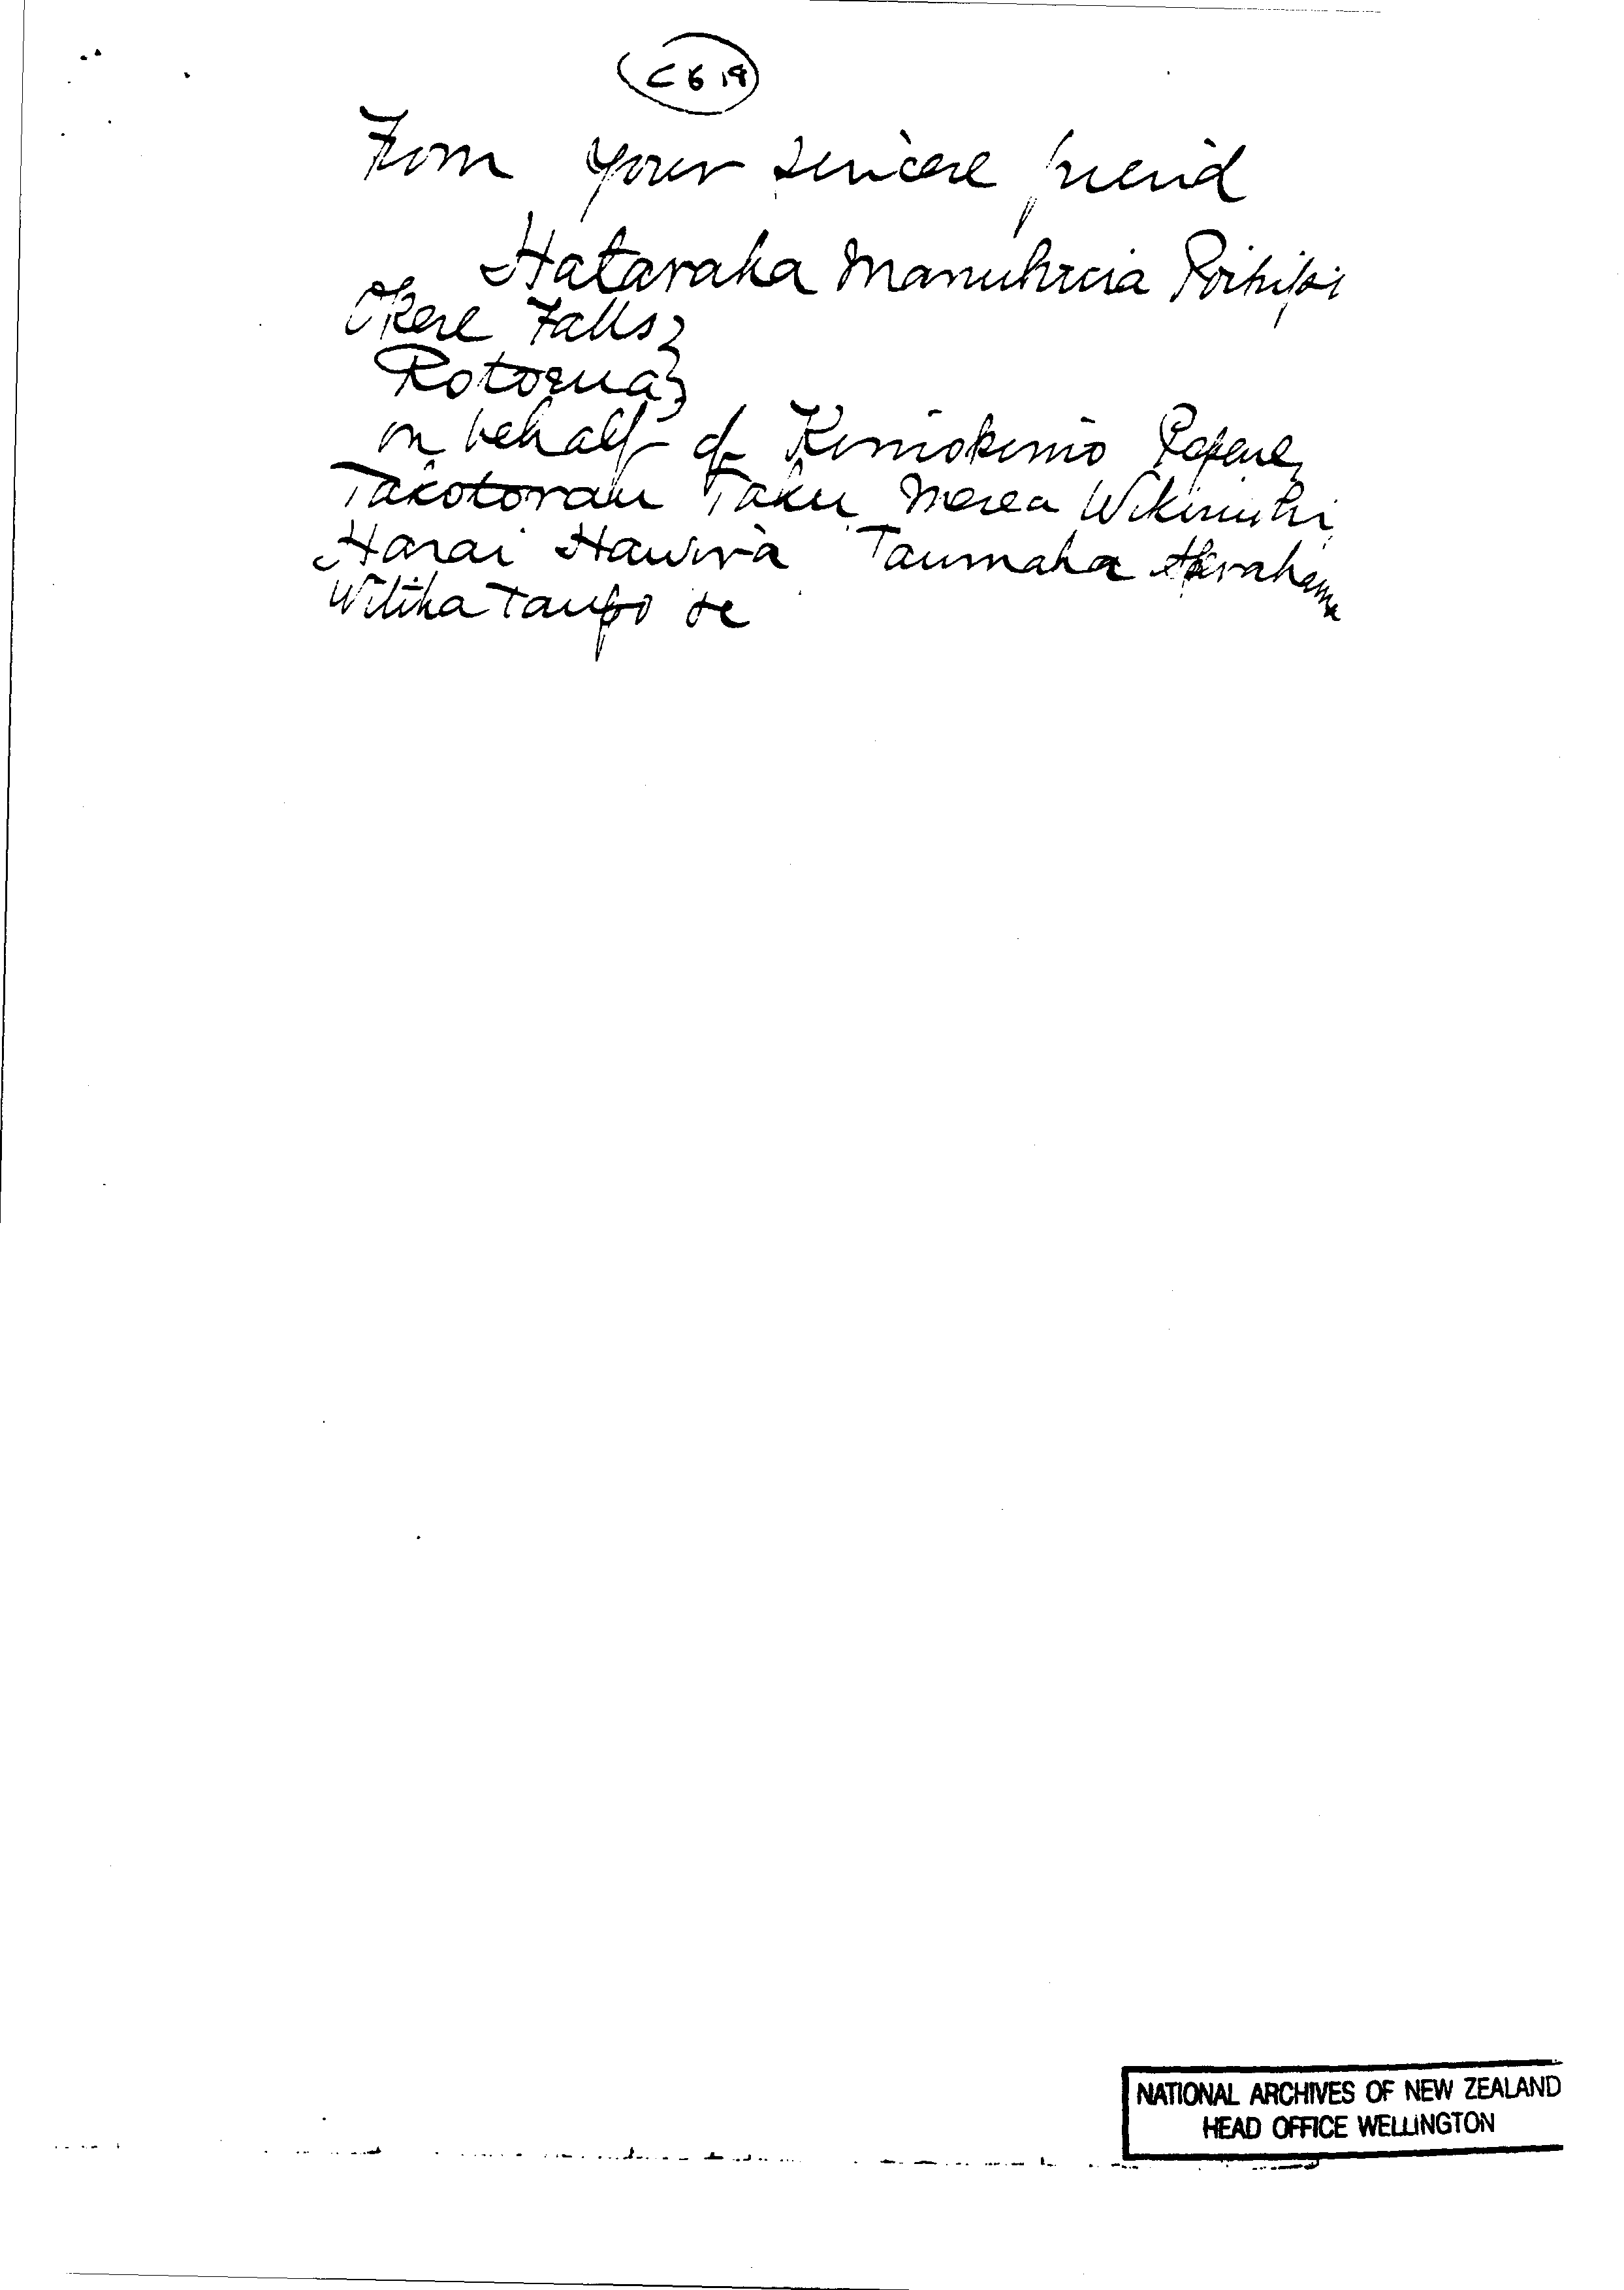 C 6 19
From your sincere friend
Hataraka Manuhuia Poihipi
Okere Falls,
Rotorua,
on behalf of Kemiokemio Pepene,
Takotorau Taku Merea Wikiriwhi,
Harai Hawira Taumaha
Wiliha Taupo
NATIONAL ARCHIVES OF NEW ZEALAND
HEAD OFFICE WELLINGTON